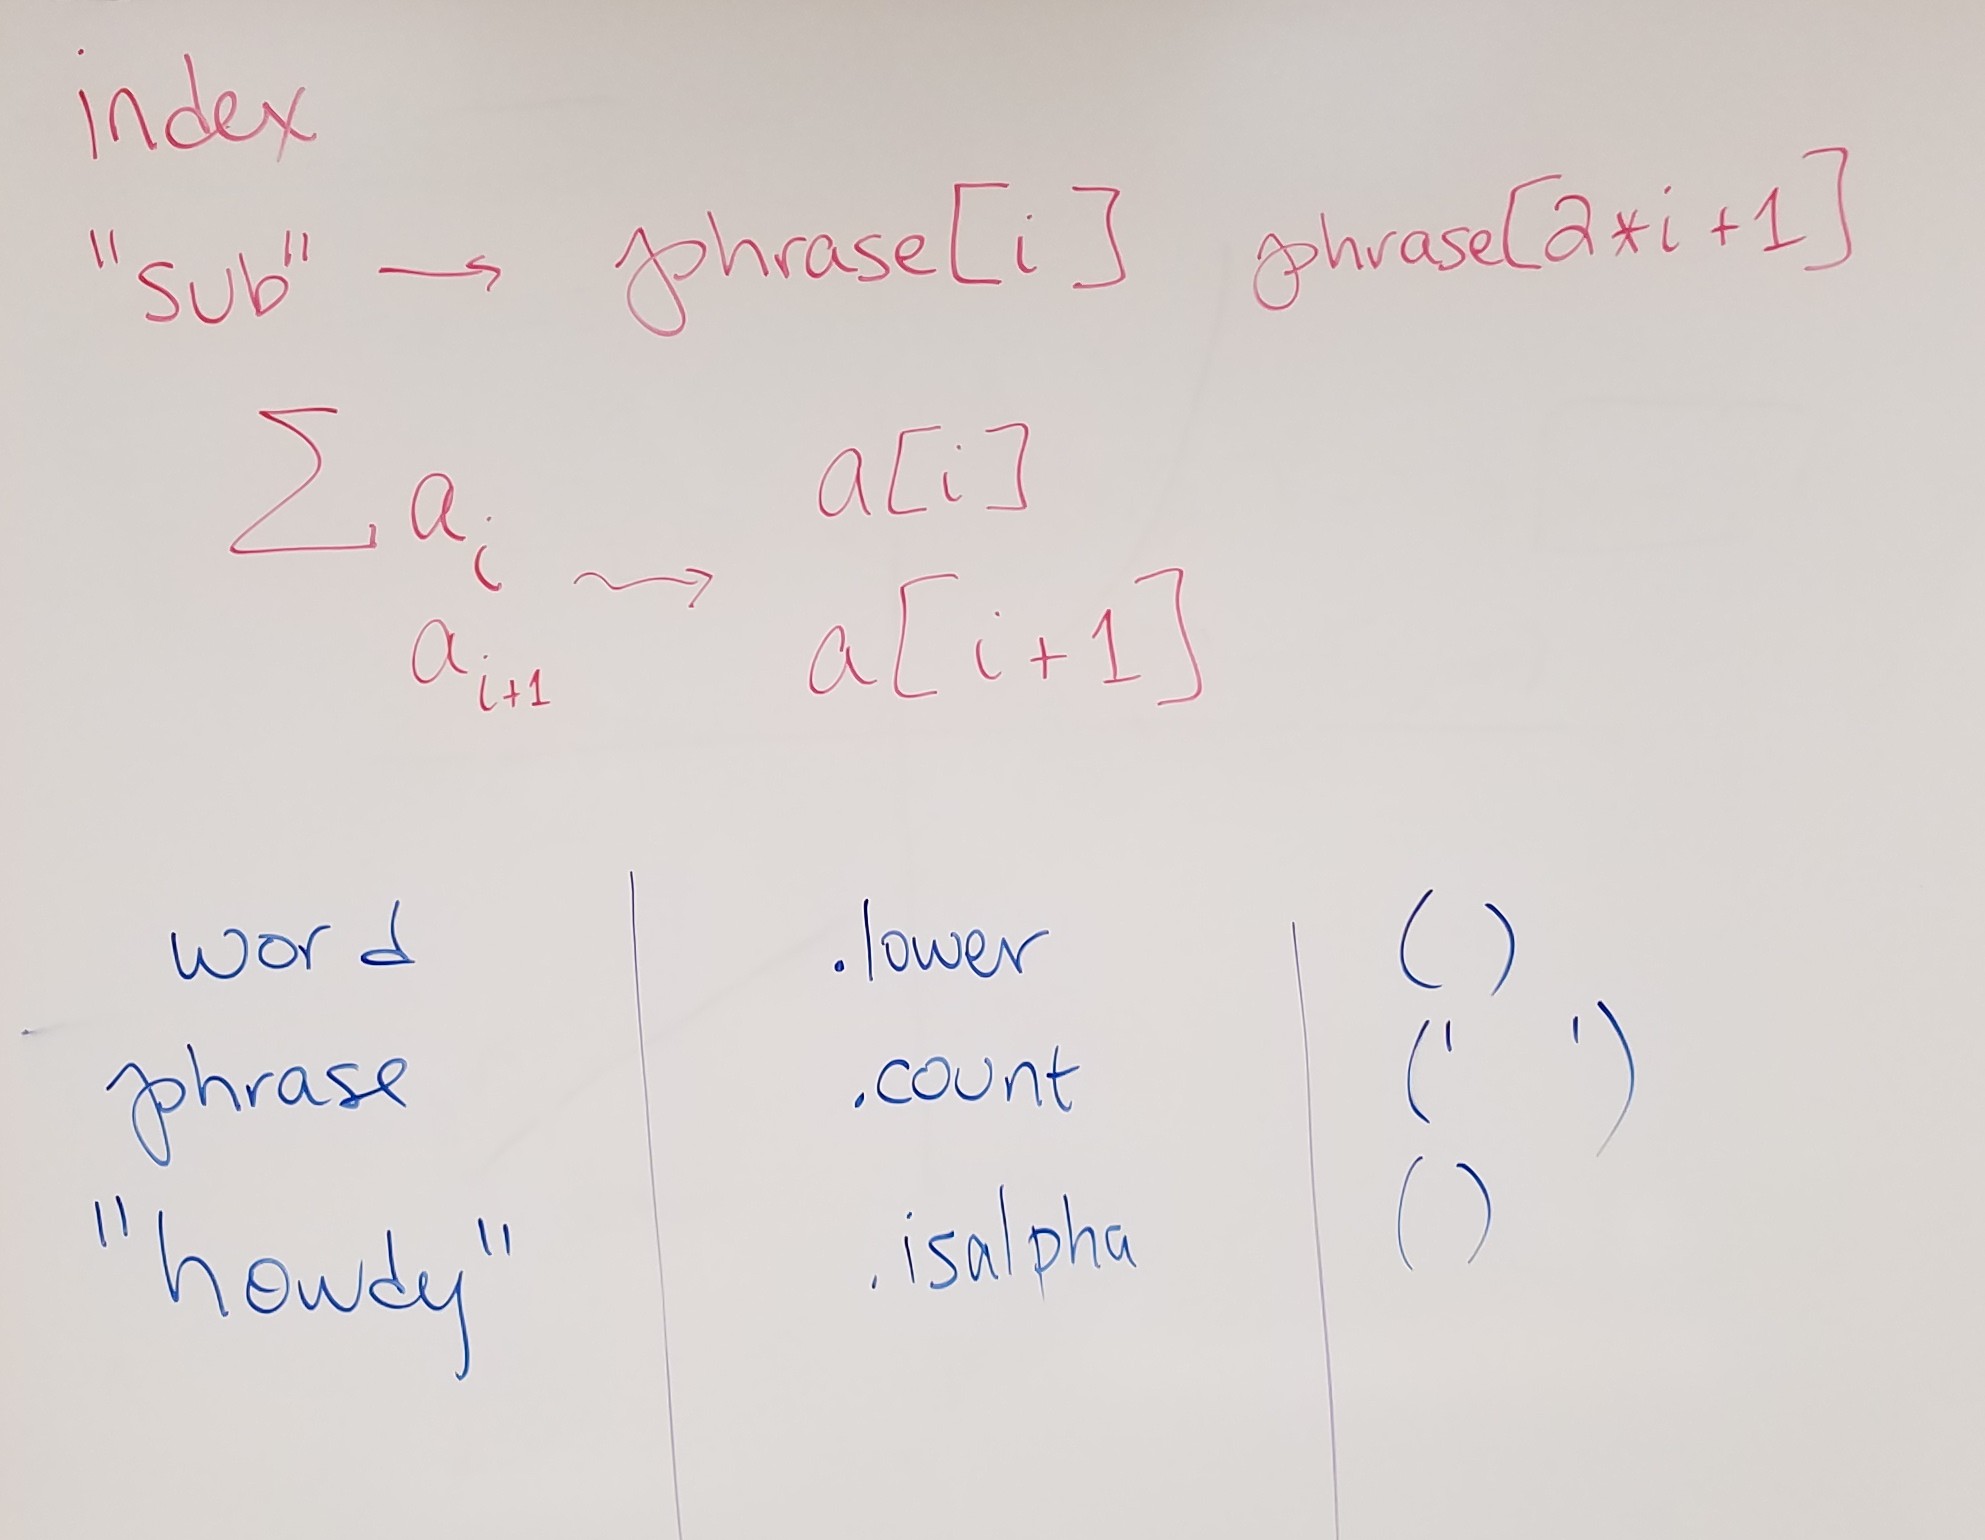 index
"sub" → phrase[i] phrase[2*i+1]
∑ aᵢ a[i]
aᵢ₊₁ → a[i+1]
word .lower ()
phrase .count (' ')
"howdy" .isalpha ()